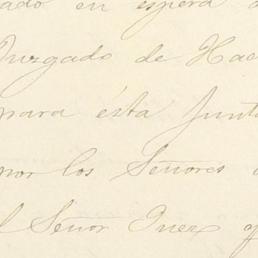 ado en espera d
Juzgado de Hac
para ésta Junta
por los Señores
l Señor Juez y